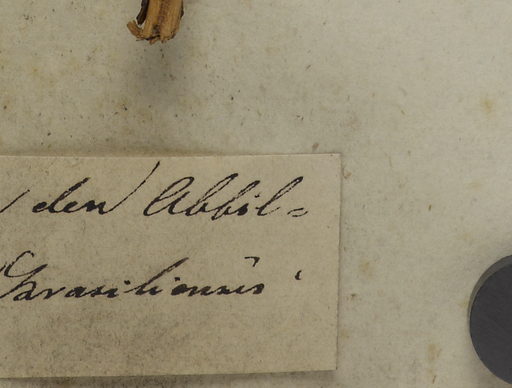 den Abbil=
Brasiliensis